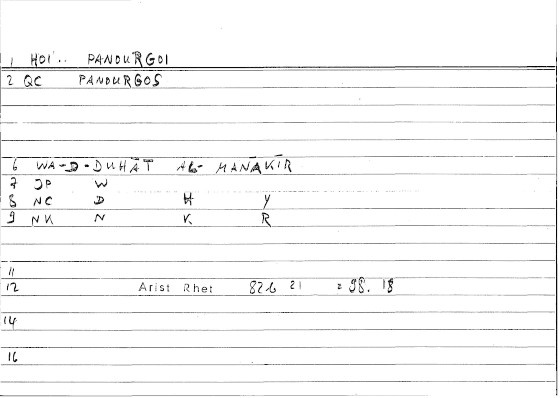 1 HOI.. PANOURGOI
2 QC PANDURGOS
6 WA-D-DUHĀT AL- MANĀKĪR
7 JP W
8 NC D H Y
9 NK N K R
11
12 Arist Rhet 826 21 = 98. 18
14
16